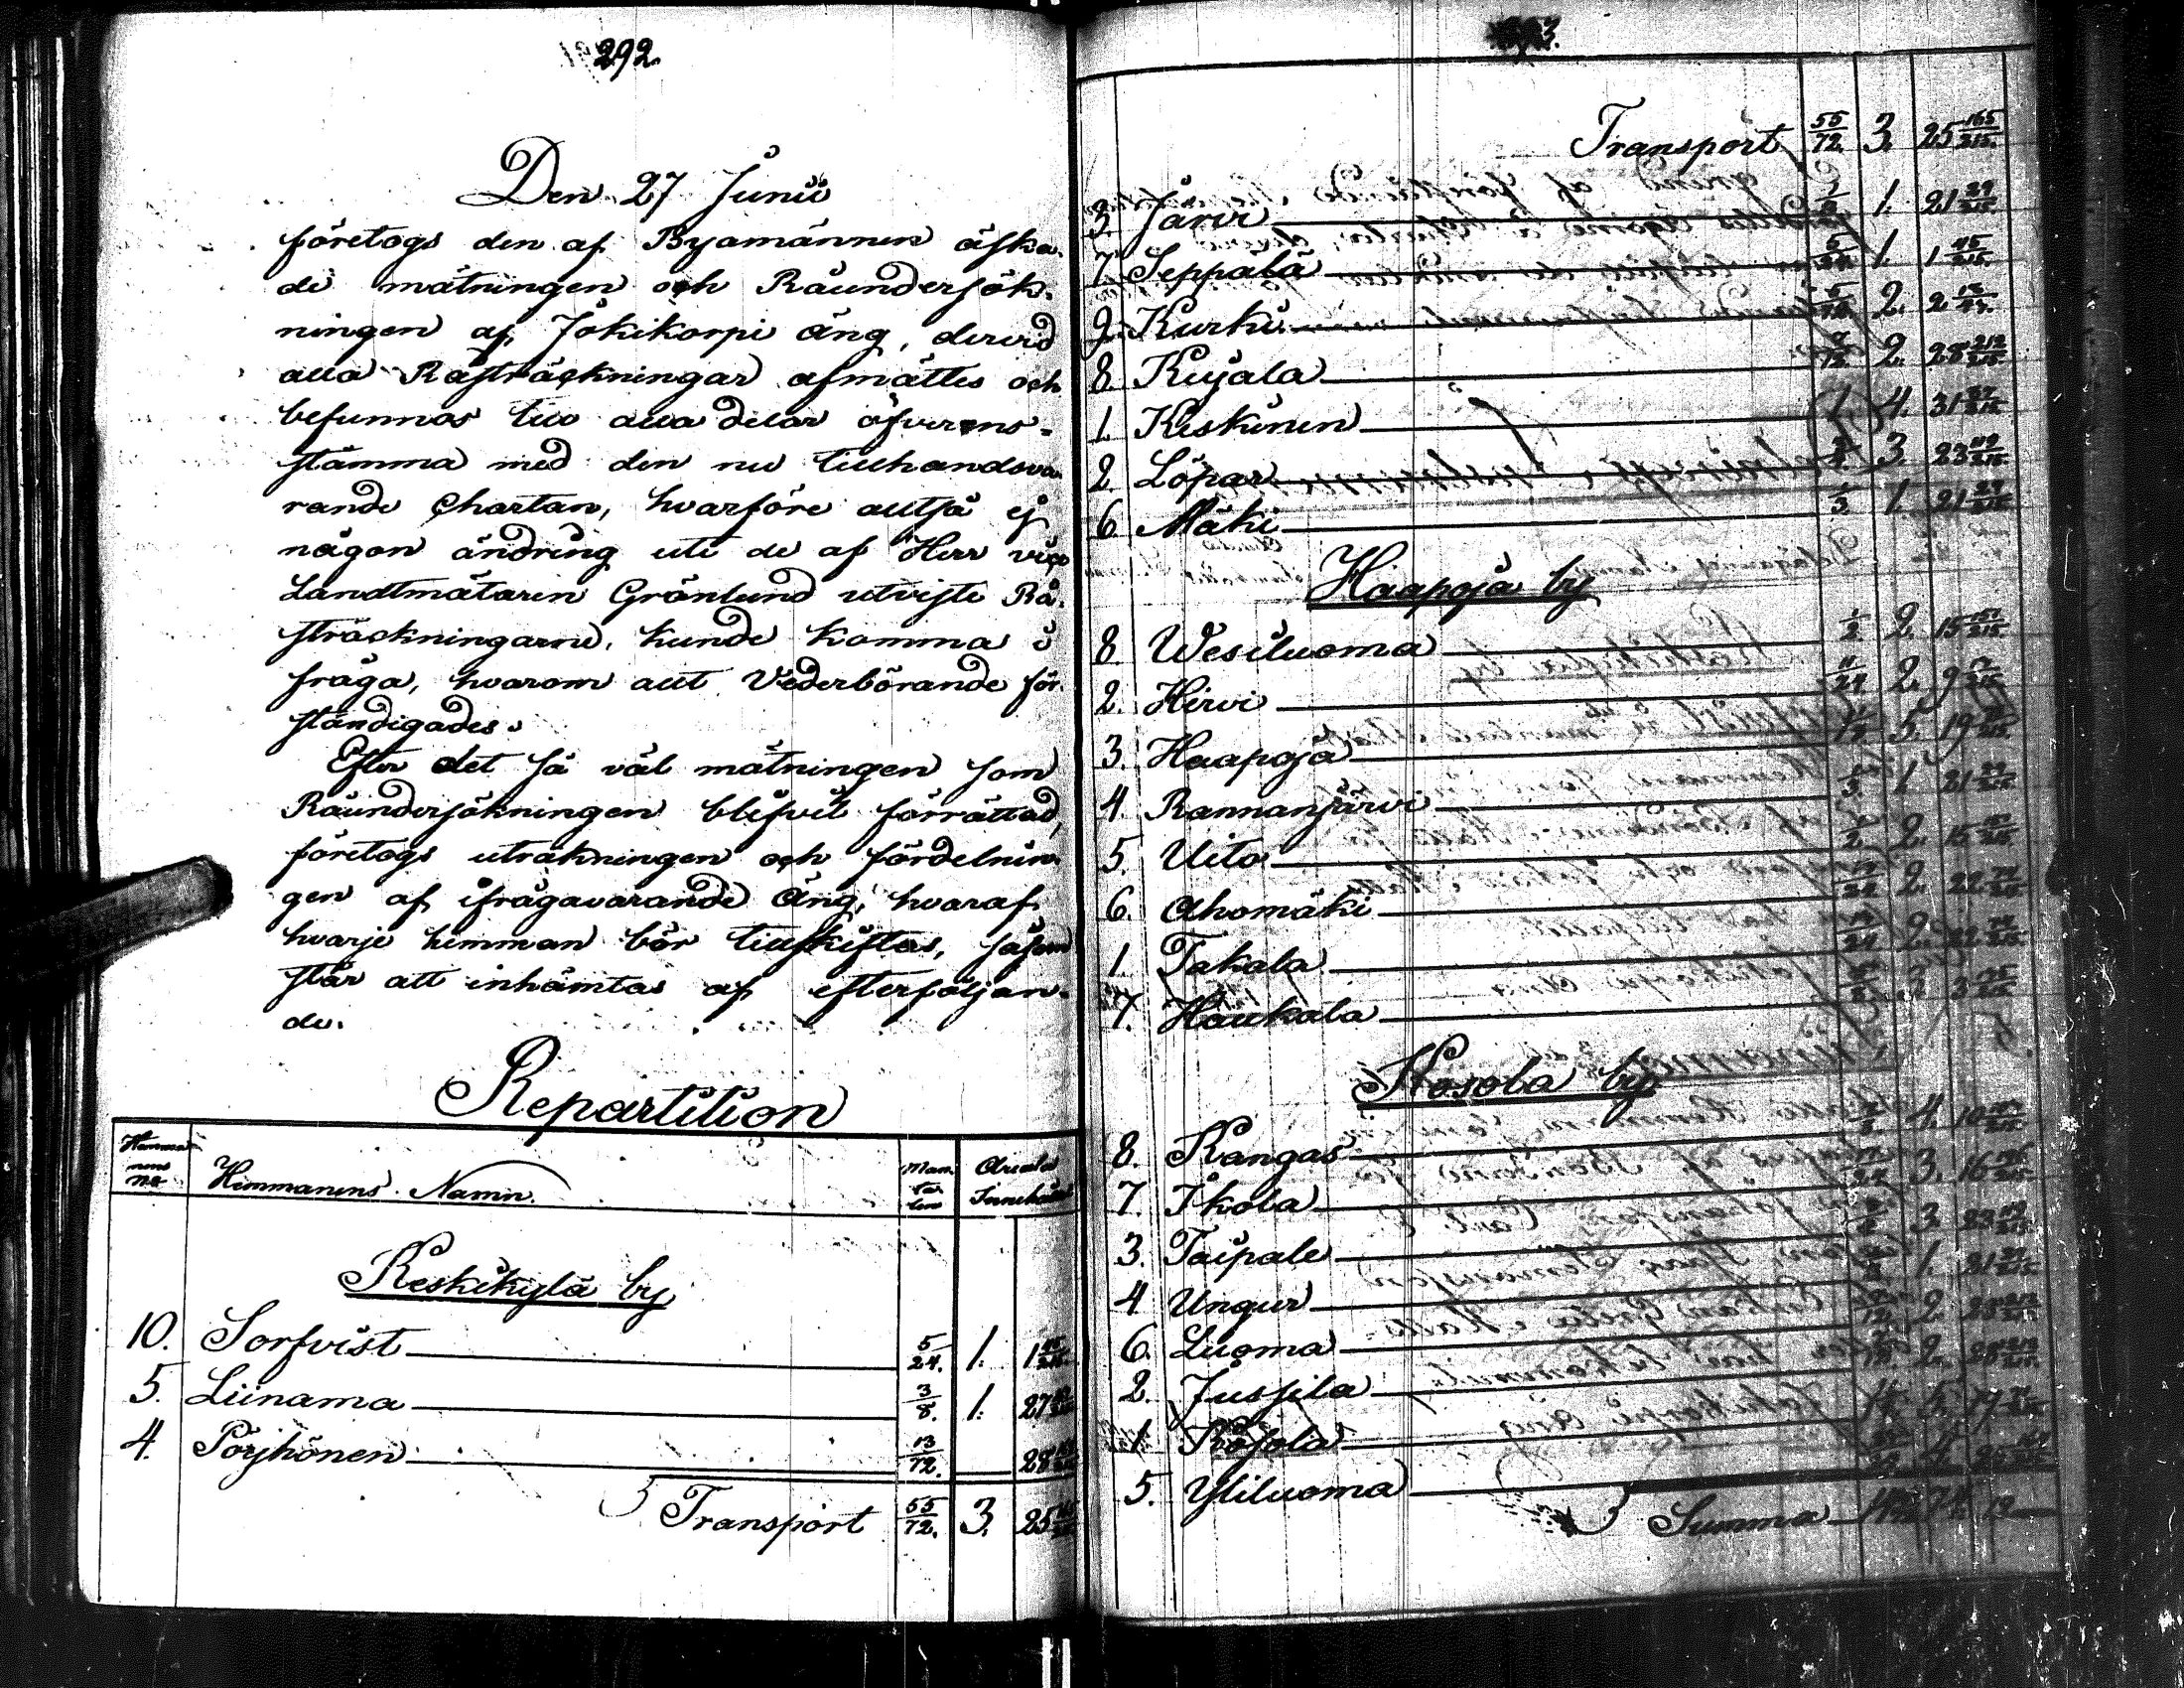 292.
Den 27 Junii
företogs den af Byamännen äska-
de mätningen och Råundersök-
ningen af Jokikorpi äng, dervid
alla Råsträckningar afmättes och
befunnos till alla delar öfverens-
stämma med den nu tillhandsva-
rande Chartan, hvarföre alltså ej
någon ändring uti de af Herr vice
Landtmätaren Grönlund utviste Rå-
sträckningarne, kunde komma i
fråga, hvarom allt Vederbörande för-
ständigades.
Efter det så väl mätningen som
Råundersökningen blifvit förrättad,
företogs uträkningen och fördelnin-
gen af ifrågavarande Äng, hvaraf
hvarje hemman bör tillskiftas, såsom
står att inhämtas af efterföljan-
de.
Repartition
Hemma-
nens
No Hemmanens Namn. Man-
ta-
len Areala
Innehåll
Keskikylä by
10. Sorfvist 5/24. 1. 1 45/215.
5. Liinama 3/8. 1. 27
4. Pöyhönen 13/72. 28
Transport 55/72. 3. 25
Transport 55/72. 3. 25 165/215.
3. Järvi 1/3 1. 21 29/215.
7. Seppälä 5/24 1. 1 45/215.
9. Kurki 2. 2
8. Kujala 7/12. 2. 28 212/215.
1. Keskinen 1 4. 31
2. Löpar 3/4. 3. 23 119/215.
6. Mäki 1/3. 1. 21 29/215.
Haapoja by
8. Wesiluoma 1/2. 2. 15 151/215.
2. Hirvi 11/24 2. 9
3. Haapoja 5. 19
4. Rannanjärvi 1/3. 1. 21 29/215.
5. Uito 1/2. 2. 15 151/215.
6. Ahomäki 2. 22
1. Takala 2. 22
7. Haukala 3
Kosola by
8. Kangas 4. 10
7. Ikola 3. 16
3. Taipale 3. 23 119/215.
4 Ungur 1. 21 29/215.
6. Luoma 7/12. 2. 28 212/215.
2. Jussila 7/12. 2. 28 212/215.
1. Kosola 5. 19
5. Yliluoma
Summa